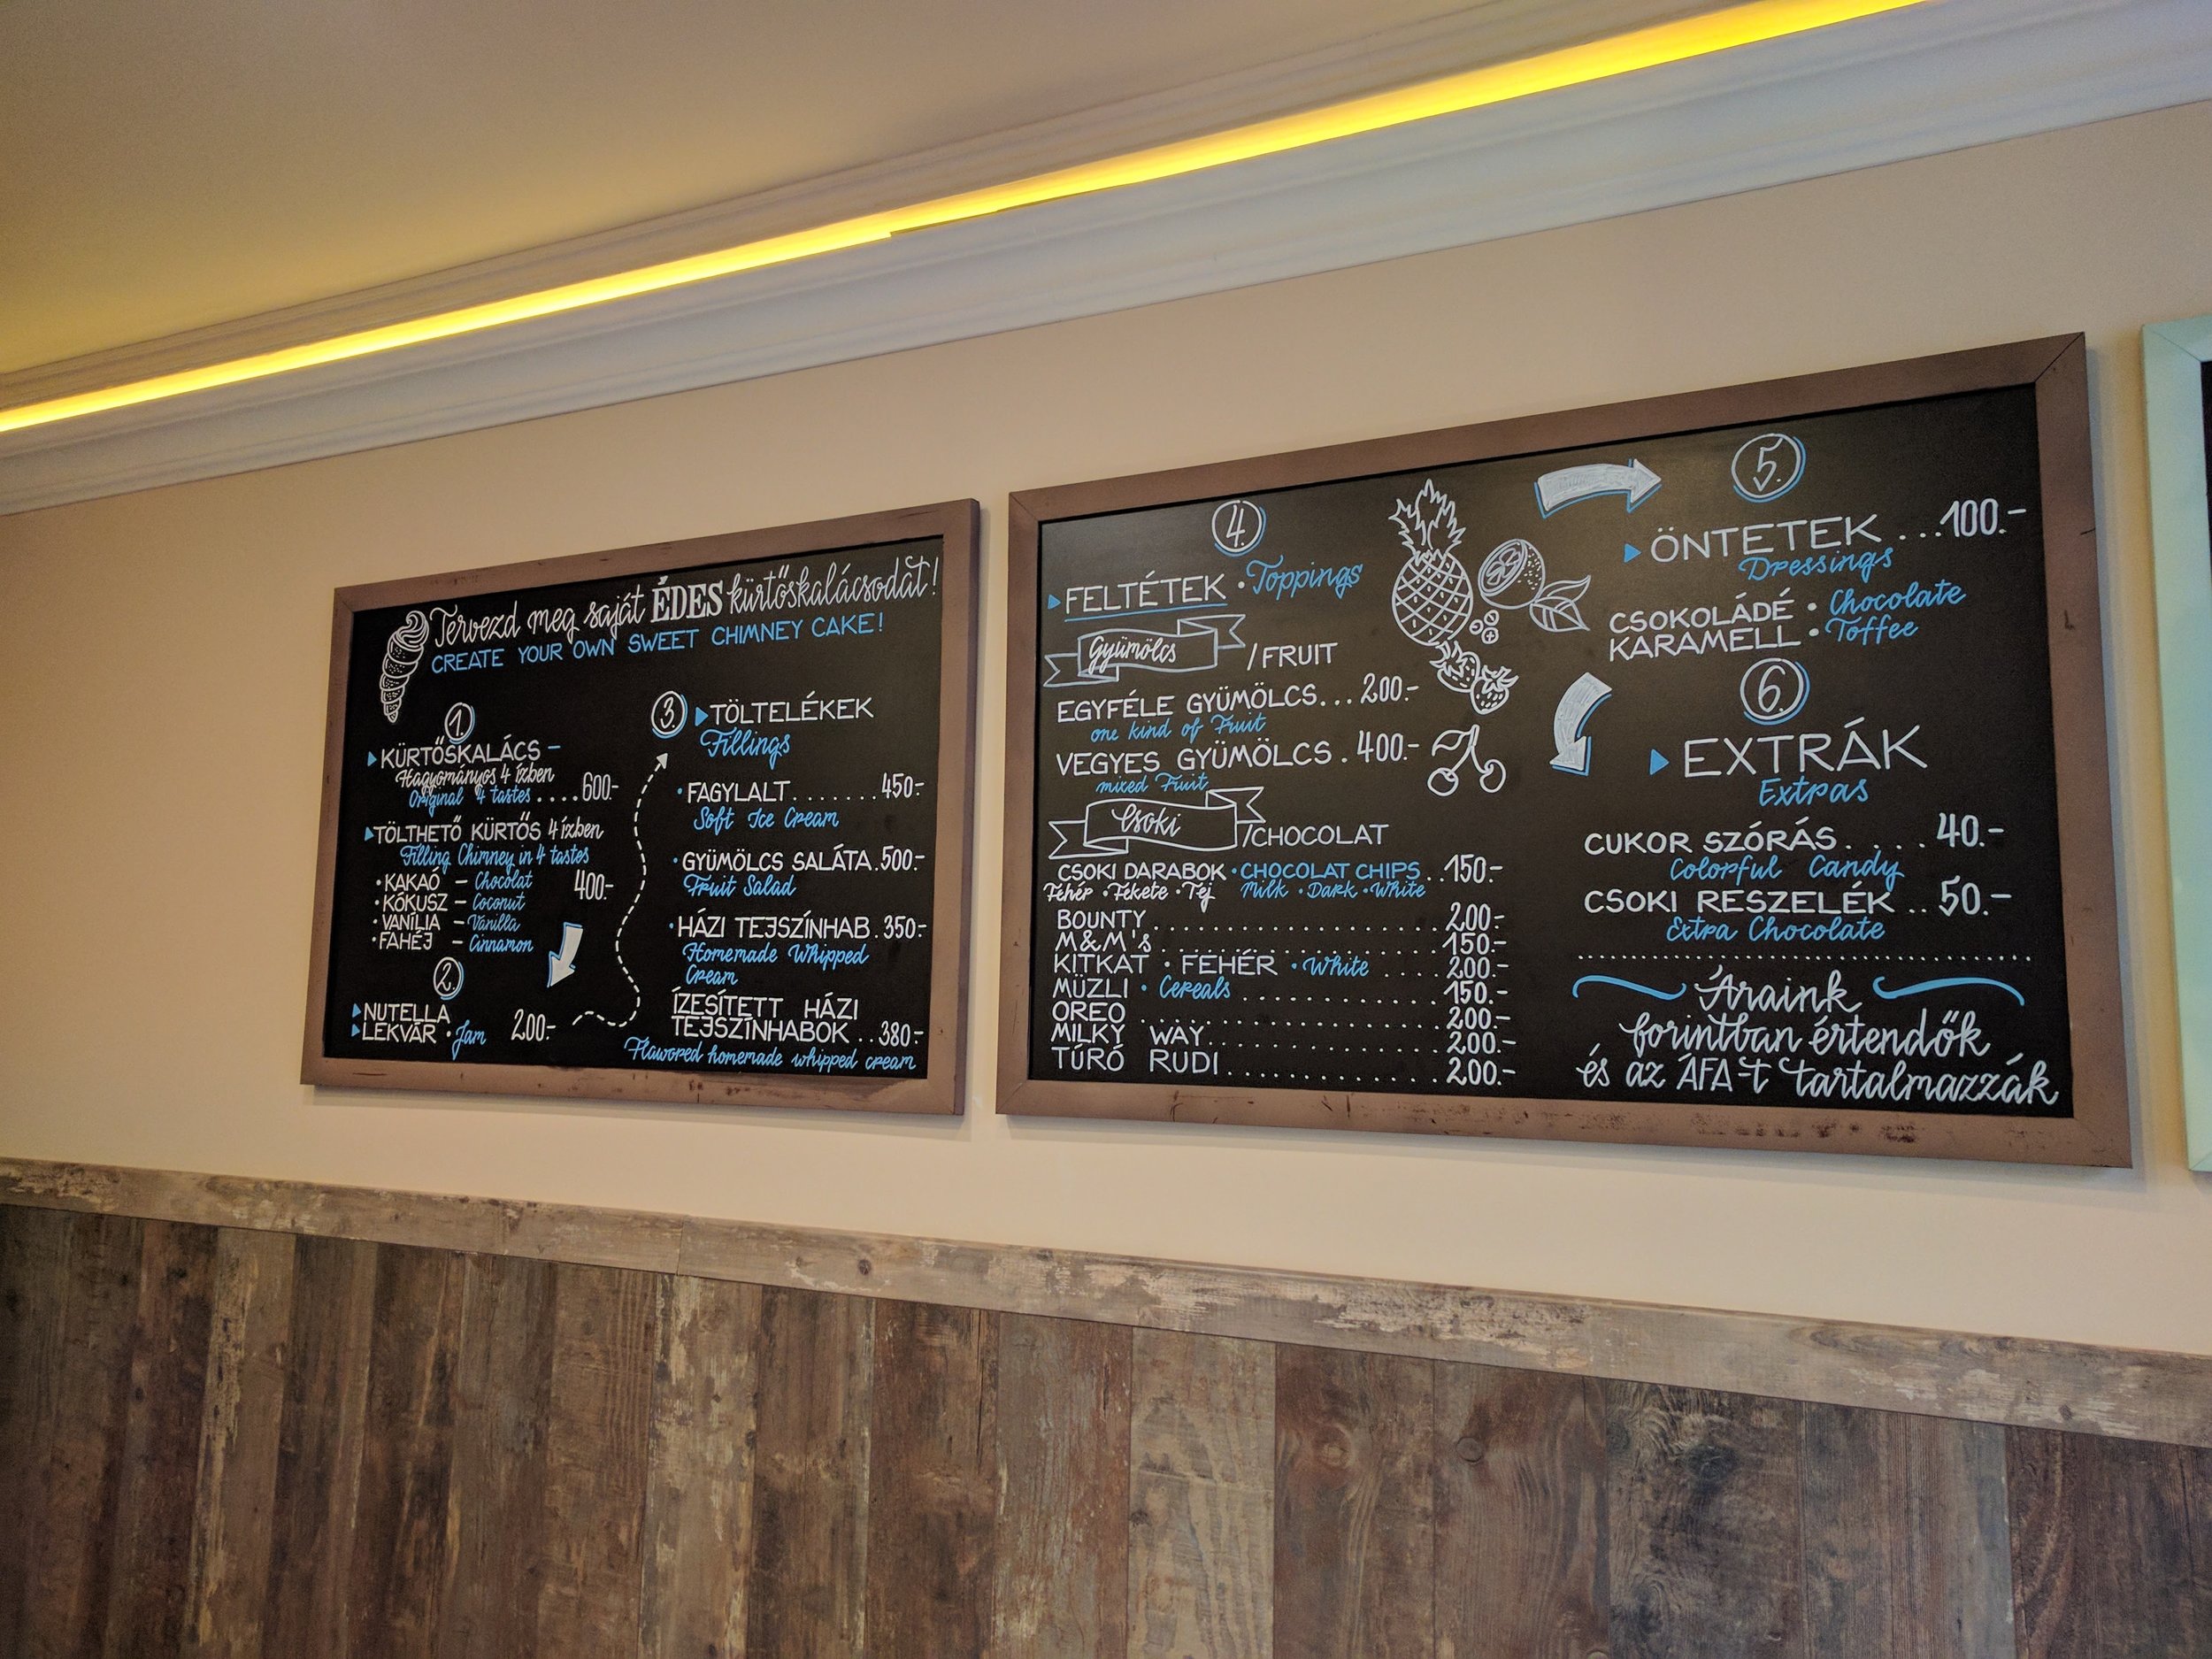 Tervezd meg saját ÉDES kürtőskalácsodat!
CREATE YOUR OWN SWEET CHIMNEY CAKE!
1.
KÜRTŐSKALÁCS –
Hagyományos 4 ízben
Original 4 tastes....600.-
TÖLTHETŐ KÜRTŐS 4 ízben
Filling Chimney in 4 tastes
• KAKAÓ – Chocolat 400.-
• KÓKUSZ – Coconut
• VANÍLIA – Vanilla
• FAHÉJ – Cinnamon
2.
NUTELLA
LEKVÁR • Jam 200.-
3. TÖLTELÉKEK
Fillings
• FAGYLALT.......450.-
Soft Ice Cream
• GYÜMÖLCS SALÁTA.500.-
Fruit Salad
• HÁZI TEJSZÍNHAB.350.-
Homemade Whipped
Cream
ÍZESÍTETT HÁZI
TEJSZÍNHABOK..380.-
Flavored homemade whipped cream
4.
FELTÉTEK • Toppings
Gyümölcs /FRUIT
EGYFÉLE GYÜMÖLCS...200.-
one kind of Fruit
VEGYES GYÜMÖLCS.400.-
mixed Fruit
Csoki /CHOCOLAT
CSOKI DARABOK • CHOCOLAT CHIPS..150.-
Fehér • Fekete • Tej Milk • Dark • White
BOUNTY......................200.-
M&M's......................150.-
KITKAT • FEHÉR • White....200.-
MÜZLI • Cereals...............150.-
OREO......................200.-
MILKY WAY..................200.-
TÚRÓ RUDI.................200.-
5.
ÖNTETEK...100.-
Dressings
CSOKOLÁDÉ • Chocolate
KARAMELL • Toffee
6.
EXTRÁK
Extras
CUKOR SZÓRÁS....40.-
Colorful Candy
CSOKI RESZELÉK..50.-
Extra Chocolate
Áraink
forintban értendők
és az ÁFA-t tartalmazzák